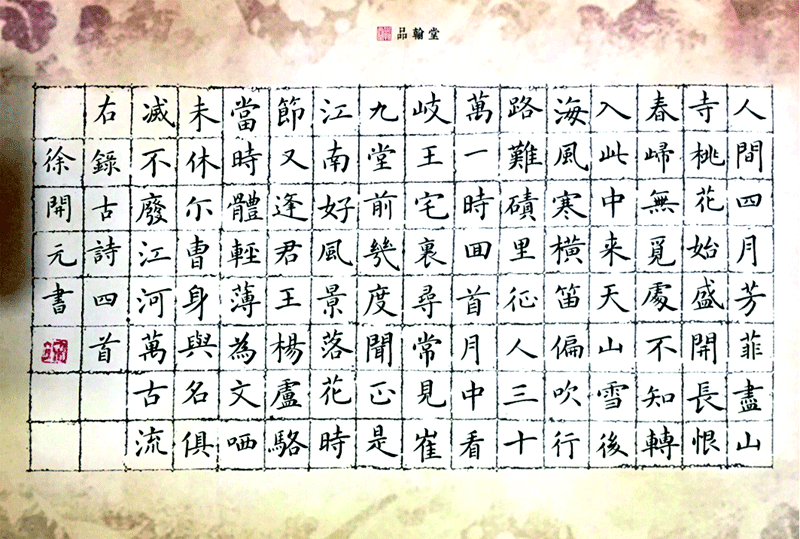 品翰堂
人間四月芳菲盡山
寺桃花始盛開長恨
春歸無覓處不知轉
入此中来天山雪後
海風寒橫笛偏吹行
路難磧里征人三十
萬一時回首月中看
岐王宅裏尋常見崔
九堂前幾度聞正是
江南好風景落花時
節又逢君王楊盧駱
當時體輕薄為文哂
未休尔曹身與名俱
滅不廢江河萬古流
右錄古詩四首
徐開元書